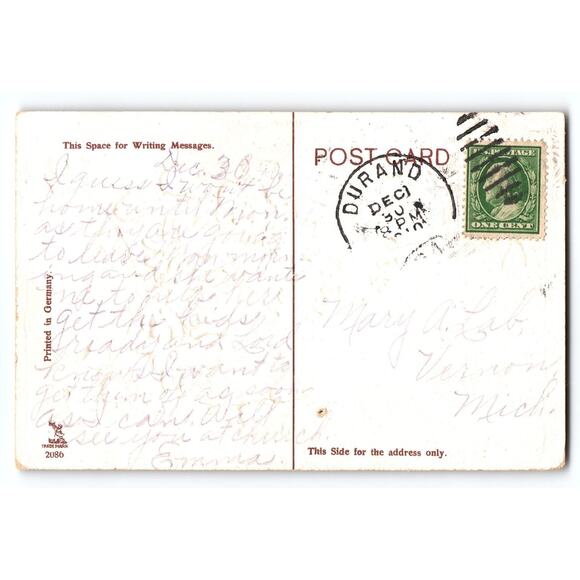 This Space for Writing Messages.
Dec. 30
I guess I won't be
home until Mon.
as they are
to leave Mon morn-
ing and he wants
me to help her
get the kids
ready and Lord
knows I want to
get them of as soon
as I can. Will
see you at church
Emma.
Printed in Germany.
TRADE MARK
2086
POST CARD
DURAND
DEC
30
PM
U.S. POSTAGE
ONE CENT
Mary A. Lab.
Vernon
Mich.
This Side for the address only.